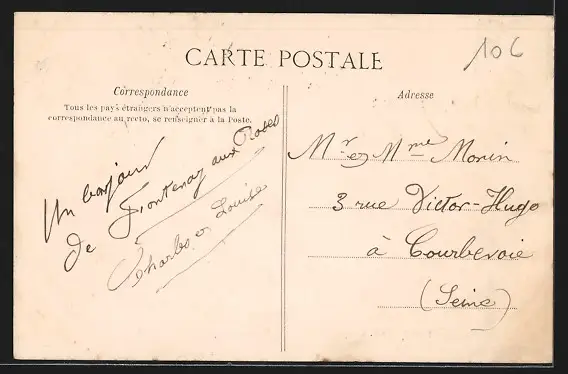 CARTE POSTALE
10 €
Correspondance
Tous les pays étrangers n'acceptent pas la
correspondance au recto, se renseigner à la Poste.
Un bonjour
de Fontenay aux Roses
Charles et Louise
Adresse
Mr et Mme Morin
3 rue Victor-Hugo
à Courbevoie
(Seine)